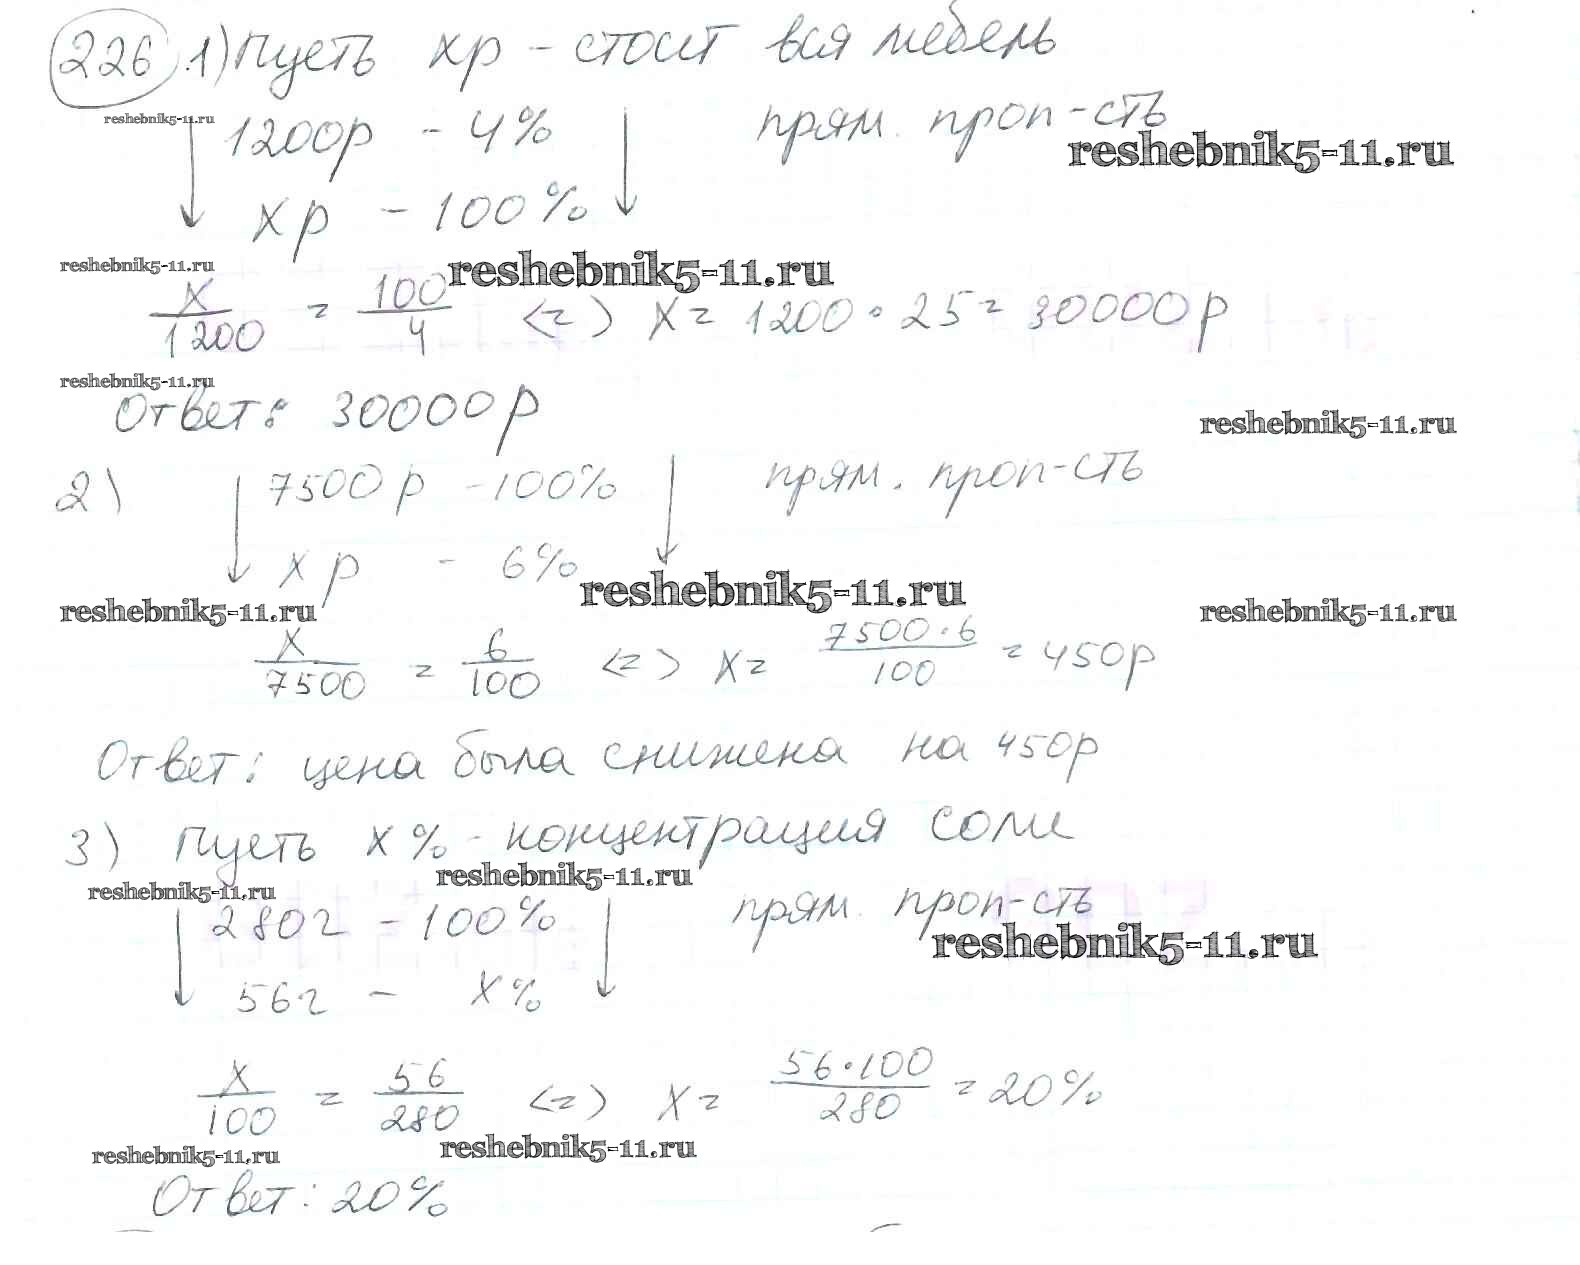 226 1) Пусть xр - стоит вся мебель
reshebnik5-11.ru
1200р - 4% прям. проп-сть
reshebnik5-11.ru
xр - 100%
reshebnik5-11.ru reshebnik5-11.ru
x/1200 = 100/4 <=> x = 1200 · 25 = 30000р
reshebnik5-11.ru
Ответ: 30000р
reshebnik5-11.ru
2) 7500р - 100% прям. проп-сть
xр - 6%
reshebnik5-11.ru reshebnik5-11.ru reshebnik5-11.ru
x/7500 = 6/100 <=> x = 7500·6/100 = 450р
Ответ: цена была снижена на 450р
3) Пусть x% - концентрация соли
reshebnik5-11.ru reshebnik5-11.ru
280г - 100% прям. проп-сть
reshebnik5-11.ru
56г - x%
x/100 = 56/280 <=> x = 56·100/280 = 20%
reshebnik5-11.ru reshebnik5-11.ru
Ответ: 20%